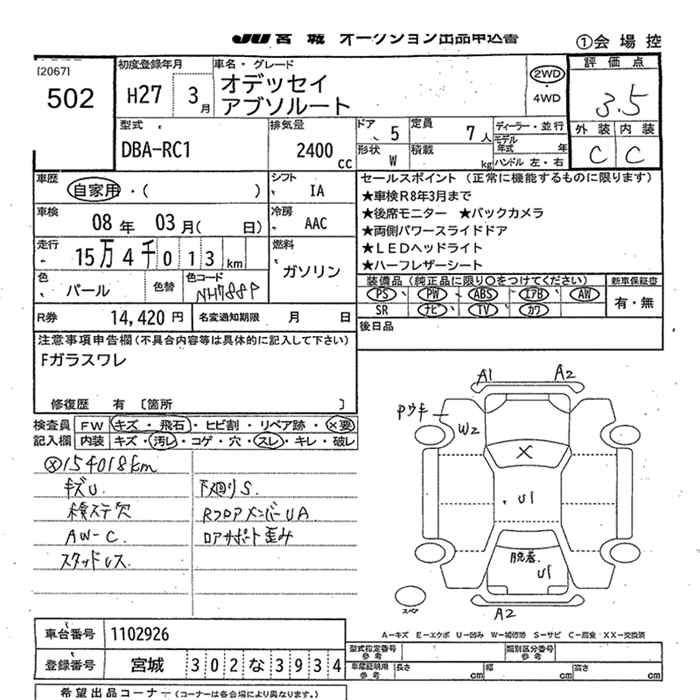 JU 宮城 オークション出品申込書
①会場控
[2067]
502
初度登録年月
H27 3月
車名・グレード
オデッセイ
アブソルート
2WD
・
4WD
評価点
3.5
外装 内装
C C
型式
DBA-RC1
排気量
2400 cc
ドア 5
定員 7人
ディーラー・並行
モデル年式 年
形状 W
積載 kg
ハンドル 左・右
車歴
自家用・( )
シフト
IA
車検
08年 03月( 日)
冷房
AAC
走行
15万4千013km
燃料
ガソリン
色
パール
色替
色コード
NH788P
R券 14,420円
名変通知期限 月 日
セールスポイント (正常に機能するものに限ります)
★車検R8年3月まで
★後席モニター ★バックカメラ
★両側パワースライドドア
★LEDヘッドライト
★ハーフレザーシート
装備品(純正品に限り○をつけてください)
新車保証書
PS PW ABS エアB AW
SR ナビ TV カワ
有・無
後日品
注意事項申告欄(不具合内容等は具体的に記入して下さい)
Fガラスワレ
修復歴 有 [箇所 ]
検査員記入欄
FW キズ・飛石・ヒビ割・リペア跡・×要
内装 キズ・汚レ・コゲ・穴・スレ・キレ・破レ
ⓧ154018km
キズU
下廻りS.
AW-C.
RフロアメンバーUA
スタッドレス
A1 A2
W2
X
U1
脱着
U1
スペア
A2
A-キズ E-エクボ U-凹み W-補修跡 S-サビ C-腐食 XX-交換済
車台番号 1102926
登録番号 宮城 302な3934
型式指定番号 参考
類別区分番号 参考
車庫証明用 参考
長さ cm 幅 cm 高さ cm
希望出品コーナー(コーナーは各会場により異なります。)